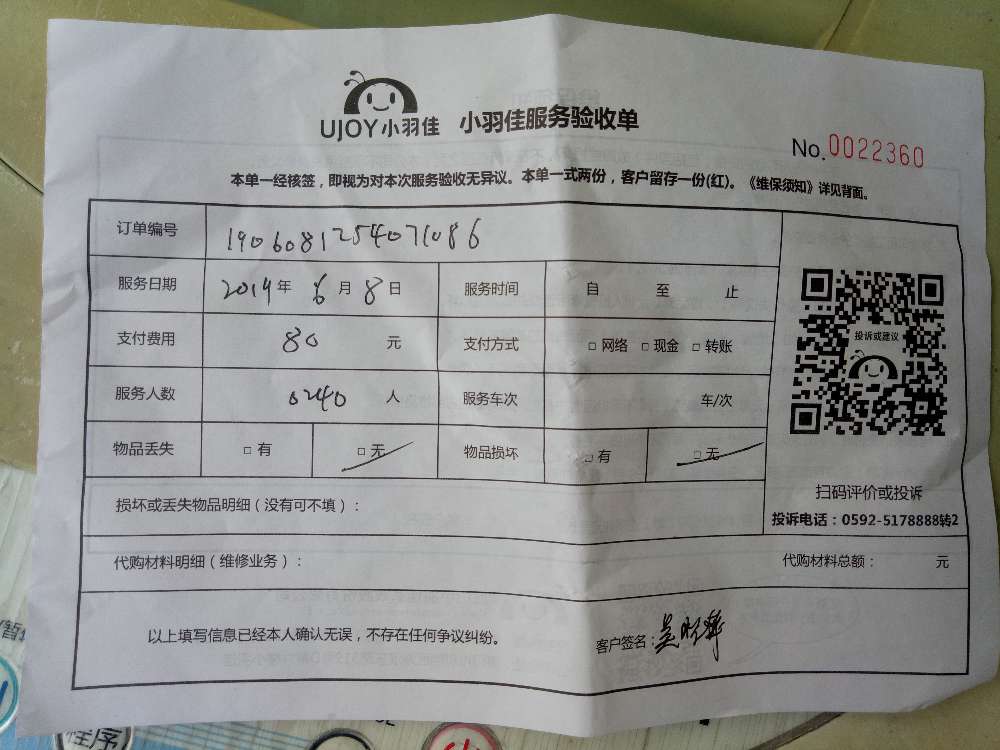 UJOY小羽佳 小羽佳服务验收单
No.0022360
本单一经核签，即视为对本次服务验收无异议。本单一式两份，客户留存一份(红)。《维保须知》详见背面。
订单编号 1906081254071086
服务日期 2019年 6月 8日 服务时间 自 至 止
支付费用 80 元 支付方式 □ 网络 □ 现金 □ 转账
服务人数 0240 人 服务车次 车/次
物品丢失 □ 有 □ 无 物品损坏 □ 有 □ 无
损坏或丢失物品明细（没有可不填）：
代购材料明细（维修业务）： 代购材料总额： 元
以上填写信息已经本人确认无误，不存在任何争议纠纷。 客户签名：
投诉或建议
扫码评价或投诉
投诉电话：0592-5178888转2
程序